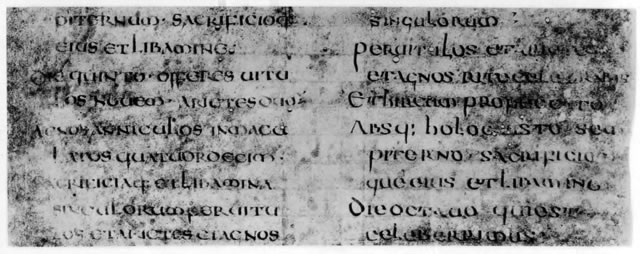 piternum · sacrificioq
eius et libamine ·
Die quinto · offeres uitu
los nouem · arietes duos
agnos anniculos inmacu
latos quatuordecim ·
sacrificiaq et libamina
singulorum per uitu
los et arietes et agnos
singulorum
per uitulos et arietes
et agnos rite celebrabis
et hircum pro peccato
absq; holocausto sem
piterno · sacrificio
que eius et libamine
Die octauo qui est
celeberrimus